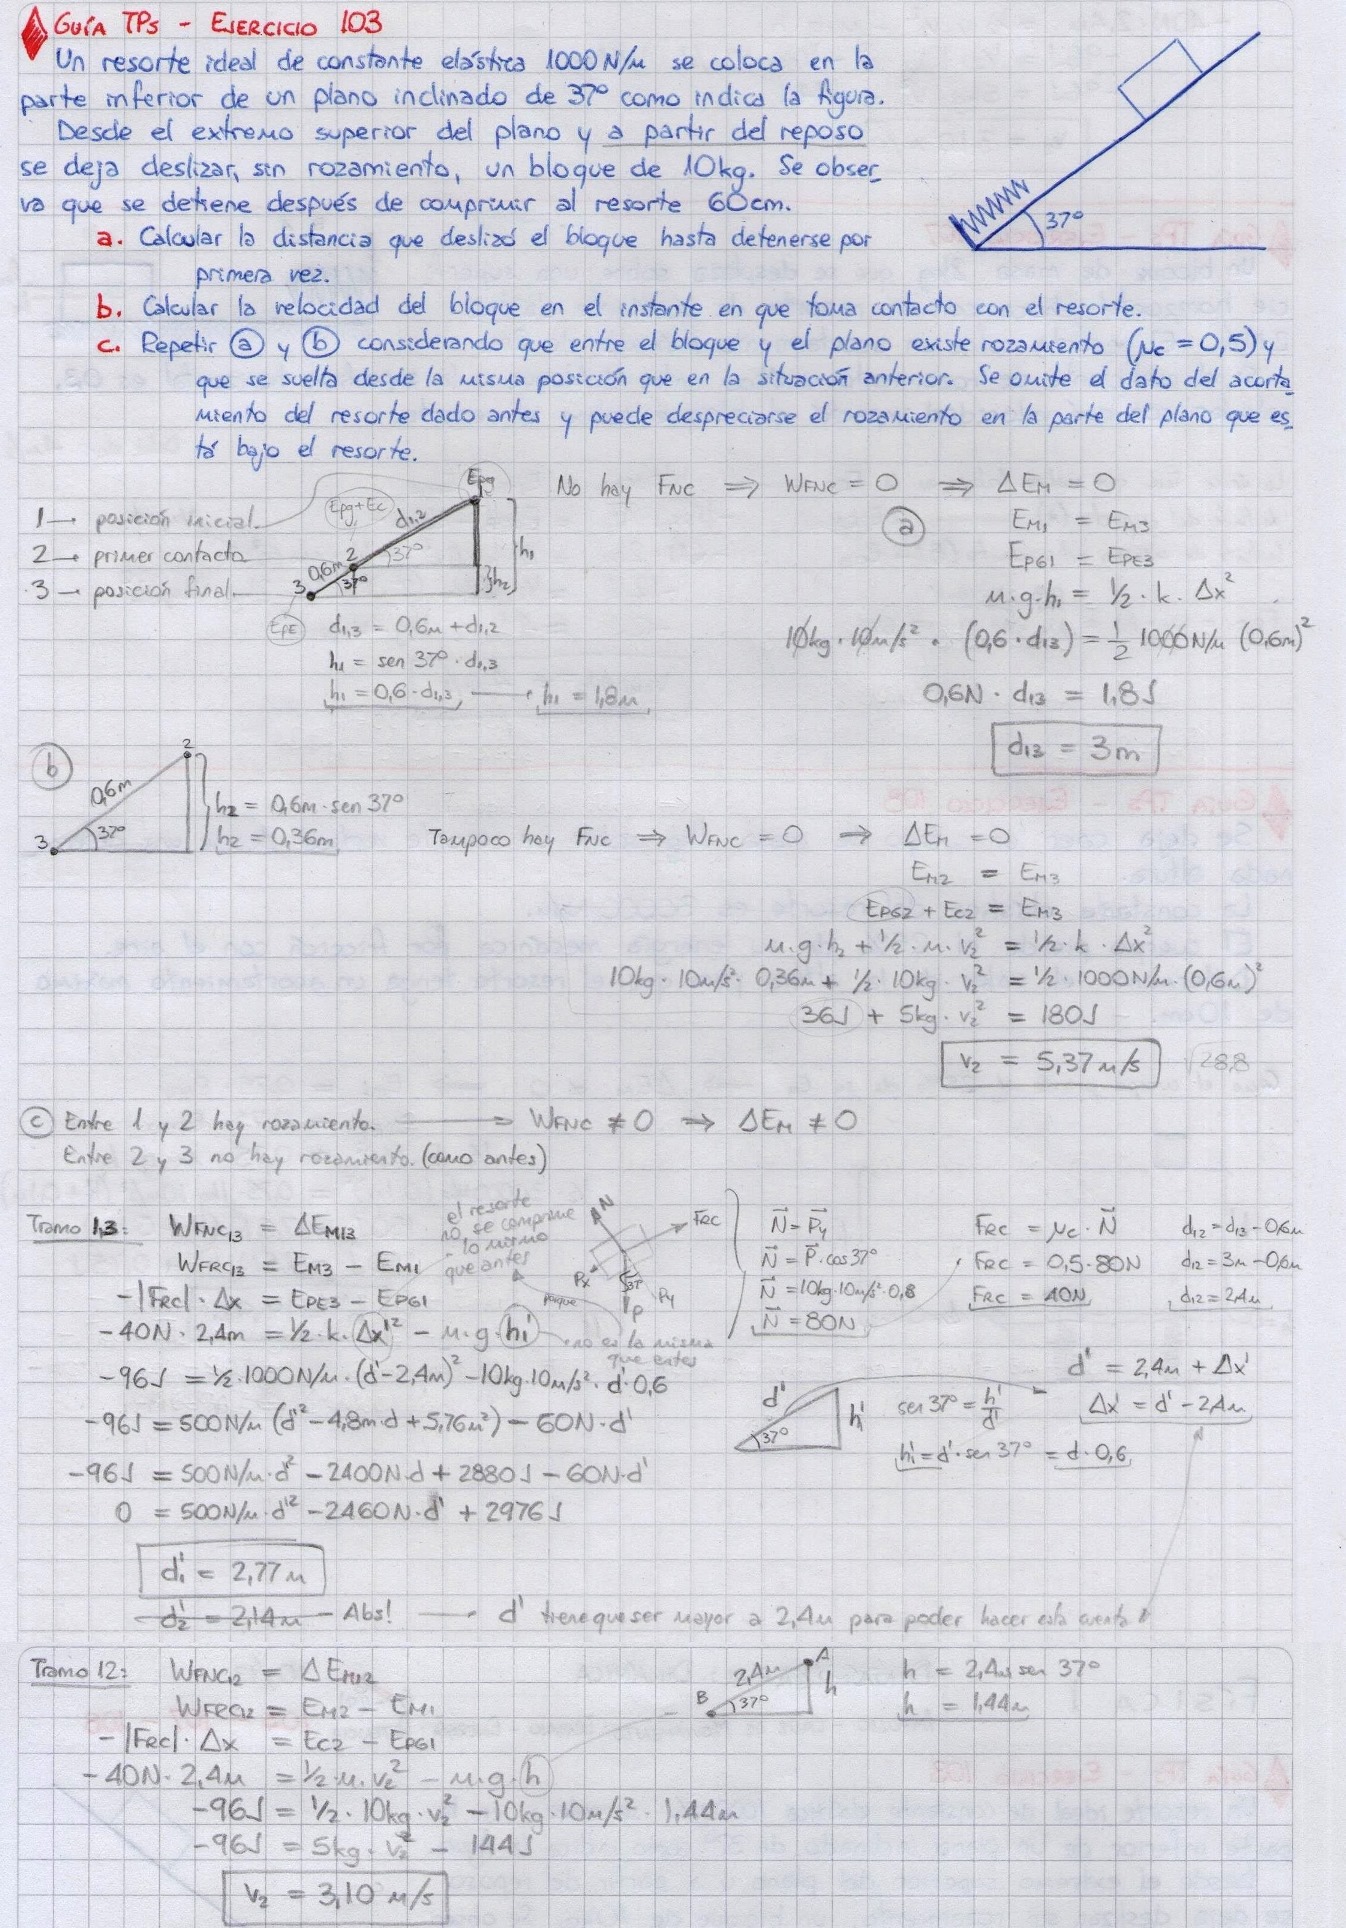 GUÍA TPs - EJERCICIO 103
Un resorte ideal de constante elástica 1000 N/m se coloca en la
parte inferior de un plano inclinado de 37° como indica la figura.
Desde el extremo superior del plano y a partir del reposo
se deja deslizar, sin rozamiento, un bloque de 10kg. Se obser
va que se detiene después de comprimir al resorte 60cm.
37°
a. Calcular la distancia que deslizó el bloque hasta detenerse por
primera vez.
b. Calcular la velocidad del bloque en el instante en que toma contacto con el resorte.
c. Repetir a y b considerando que entre el bloque y el plano existe rozamiento (μc = 0,5) y
que se suelta desde la misma posición que en la situación anterior. Se omite el dato del acorta
miento del resorte dado antes y puede despreciarse el rozamiento en la parte del plano que es
tá bajo el resorte.
No hay FNC ⇒ WFNC = 0 ⇒ ΔEM = 0
1 → posición inicial
2 → primer contacto
3 → posición final
Epg
1
Epg+Ec
d1,2
2
37°
0,6m
3
37°
h1
h2
EPE
d1,3 = 0,6m + d1,2
h1 = sen 37° · d1,3
h1 = 0,6 · d1,3 → h1 = 1,8m
a
EM1 = EM3
EPG1 = EPE3
m·g·h1 = 1/2 · k · Δx²
10kg · 10m/s² · (0,6 · d13) = 1/2 1000N/m (0,6m)²
0,6N · d13 = 1,8J
d13 = 3m
b
2
0,6m
3
37°
h2 = 0,6m · sen 37°
h2 = 0,36m
Tampoco hay FNC ⇒ WFNC = 0 ⇒ ΔEM = 0
EM2 = EM3
EPG2 + EC2 = EM3
m·g·h2 + 1/2 · m · v2² = 1/2 · k · Δx²
10kg · 10m/s² · 0,36m + 1/2 · 10kg · v2² = 1/2 · 1000N/m · (0,6m)²
36J + 5kg · v2² = 180J
v2 = 5,37 m/s
√28,8
c Entre 1 y 2 hay rozamiento. ⇒ WFNC ≠ 0 ⇒ ΔEM ≠ 0
Entre 2 y 3 no hay rozamiento. (como antes)
Tramo 1,3: WFNC13 = ΔEM13
WFRC13 = EM3 - EM1
-|FRC| · Δx = EPE3 - EPG1
-40N · 2,4m = 1/2 · k · Δx'² - m·g·h1'
-96J = 1/2 · 1000N/m · (d' - 2,4m)² - 10kg·10m/s² · d'·0,6
-96J = 500N/m (d'² - 4,8m·d + 5,76m²) - 60N · d'
-96J = 500N/m · d² - 2400N·d + 2880J - 60N·d'
0 = 500N/m · d'² - 2460N·d' + 2976J
el resorte
no se comprime
lo mismo
que antes
porque
no es la misma
que antes
N
FRC
Px
37°
Py
P
N = Py
N = P·cos 37°
N = 10kg·10m/s²·0,8
N = 80N
FRC = μc · N
FRC = 0,5·80N
FRC = 40N
d12 = d13 - 0,6m
d12 = 3m - 0,6m
d12 = 2,4m
d'
37°
h'
sen 37° = h'/d'
h' = d'·sen 37° = d·0,6
d' = 2,4m + Δx'
Δx' = d' - 2,4m
d1' = 2,77m
d2' = 2,14m - Abs! → d' tiene que ser mayor a 2,4m para poder hacer esta cuenta
Tramo 12: WFNC12 = ΔEM12
WFRC12 = EM2 - EM1
-|FRC| · Δx = EC2 - EPG1
-40N · 2,4m = 1/2 · m · v2² - m·g·h
-96J = 1/2 · 10kg · v2² - 10kg · 10m/s² · 1,44m
-96J = 5kg · v2² - 144J
v2 = 3,10 m/s
A
2,4m
B
37°
h
h = 2,4m sen 37°
h = 1,44m